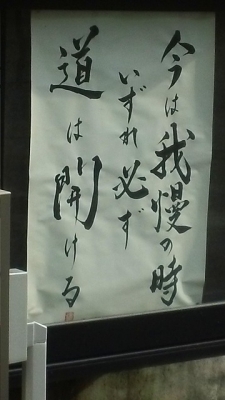 今は我慢の時
いずれ必ず
道は開ける